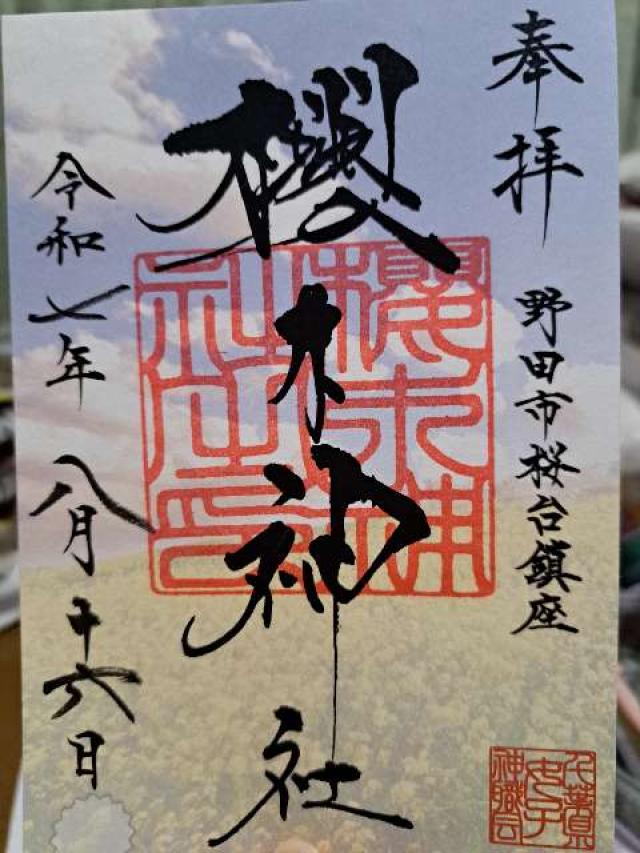 奉拝
野田市桜台鎮座
櫻木神社
櫻木神社之印
令和七年八月十六日
千葉県
女子
神職会